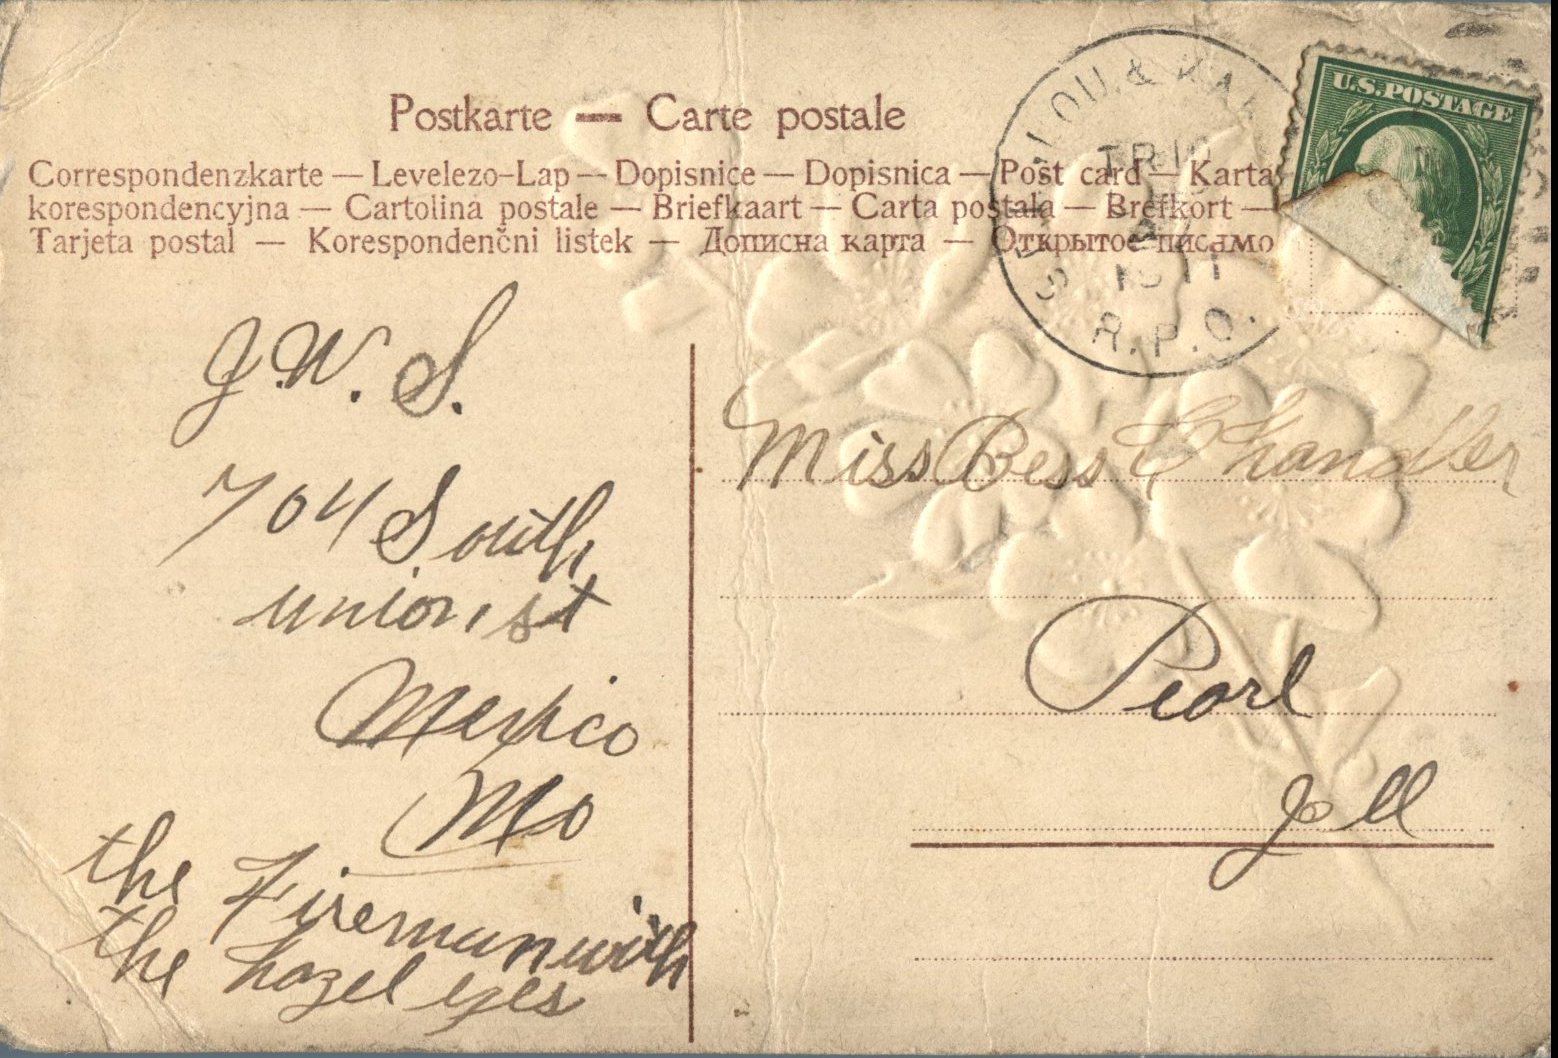 Postkarte — Carte postale
Correspondenzkarte — Levelezo-Lap — Dopisnice — Dopisnica — Post card — Karta
korespondencyjna — Cartolina postale — Briefkaart — Carta postala — Brefkort —
Tarjeta postal — Korespondenčni listek — Дописна карта — Открытое письмо
U.S. POSTAGE
LOU. & KAN.
TR.10
1911
R.P.O.
J.W. S.
704 South
union, st
Mexico
Mo
the Fireman with
the hazel eyes
Miss Bess Chandler
Pearl
Ill